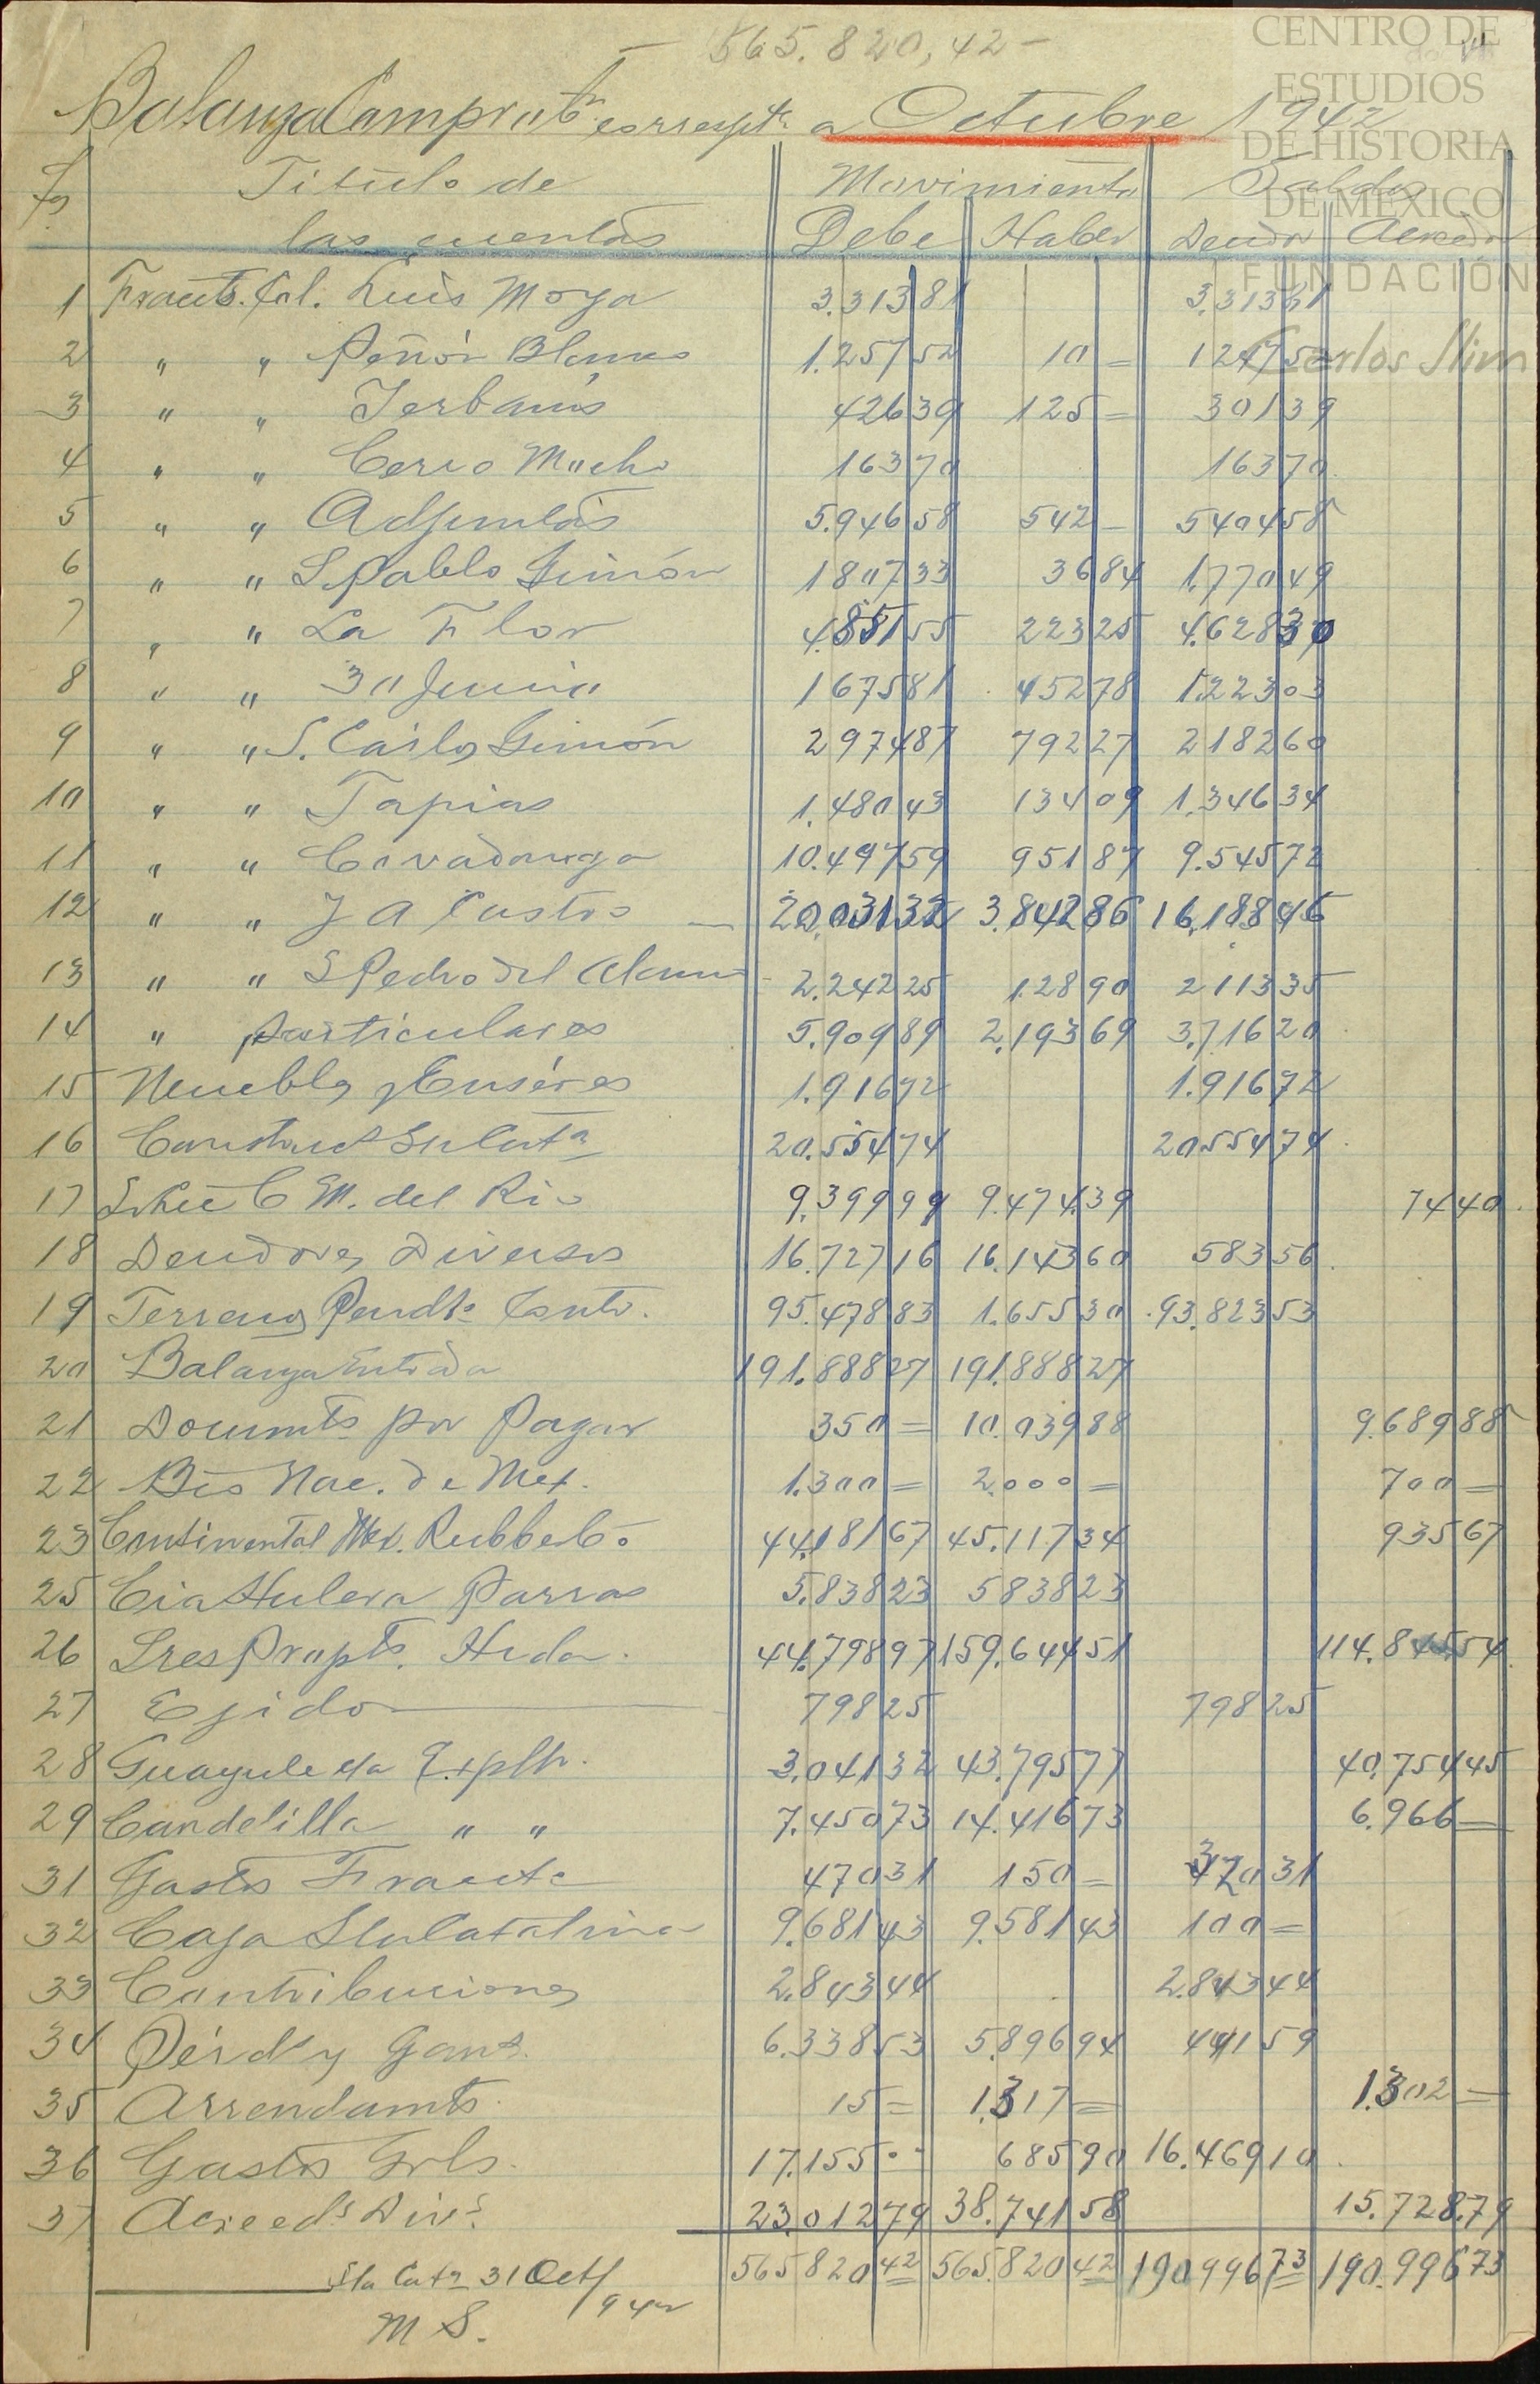 565.820,42-
CENTRO DE
ESTUDIOS
DE HISTORIA
DE MÉXICO
FUNDACIÓN
Carlos Slim
Balanza Comprobn. correspte. a Octubre 1942
Fs Titulo de Movimiento Saldos
las cuentas Debe Haber Deudor Acreedor
1 Fracets. Cnl. Luis Moya 3.313 81 3.313 81
2 " " Peñón Blanco 1.257 52 10 = 1247 52
3 " " Yerbanis 426 39 125 = 301 39
4 " " Cerro Mocho 163 70 163 70
5 " " Adjuntas 5.946 58 542 = 5404 58
6 " " S. Pablo Simón 1807 33 36 84 1.770 49
7 " " La Flor 4.851 55 223 25 4.628 30
8 " " 30 Junio 1675 81 452 78 1.223 03
9 " " S. Carlos Simón 2974 87 792 27 2182 60
10 " " Tapias 1.480 43 134 09 1.346 34
11 " " Covadonga 10.497 59 951 87 9.545 72
12 " " J A Castro 20.031 32 3.842 86 16.188 46
13 " " S Pedro del Alamo 2.242 25 128 90 2113 35
14 " Particulares 5.909 89 2.193 69 3.716 20
15 Muebles y Enséres 1.916 72 1.916 72
16 Construct Sta Cata 20.554 74 20554 74
17 C M. del Rio 9.399 99 9.474 39 74 40
18 Deudores Diversos 16.727 16 16.143 60 583 56
19 Terrenos Pendte 95.478 83 1.655 30 93.823 53
20 Balanza Entrada 191.888 27 191.888 27
21 Documts por Pagar 350 = 10.039 88 9.689 88
22 Bco Nac. de Mex. 1.300 = 2.000 = 700 =
23 Continental Mex. Rubber Co 44.181 67 45.117 34 935 67
25 Cia Hulera Parras 5.838 23 5838 23
26 Sres Propts. Hda. 44.798 97 159.644 51 114.845 54
27 Ejido 798 25 798 25
28 Guayule da Expltn. 3.041 32 43.795 77 40.754 45
29 Candelilla " " 7.450 73 14.416 73 6.966 =
31 Gastos Fraccte 470 31 150 = 320 31
32 Caja Sta Catalina 9.681 43 9.581 43 100 =
33 Contribuciones 2.843 44 2.843 44
34 Pérds y Gans. 6.338 53 5.896 94 441 59
35 Arrendamts. 15 = 1.317 = 1.302 =
36 Gastos Grls. 17.155 00 685 90 16.469 10
37 Acreeds. Divs. 23.012 79 38.741 58 15.728.79
565820 42 565.820 42 190996 73 190.996 73
Sta Cata 31 Oct/942
M S.